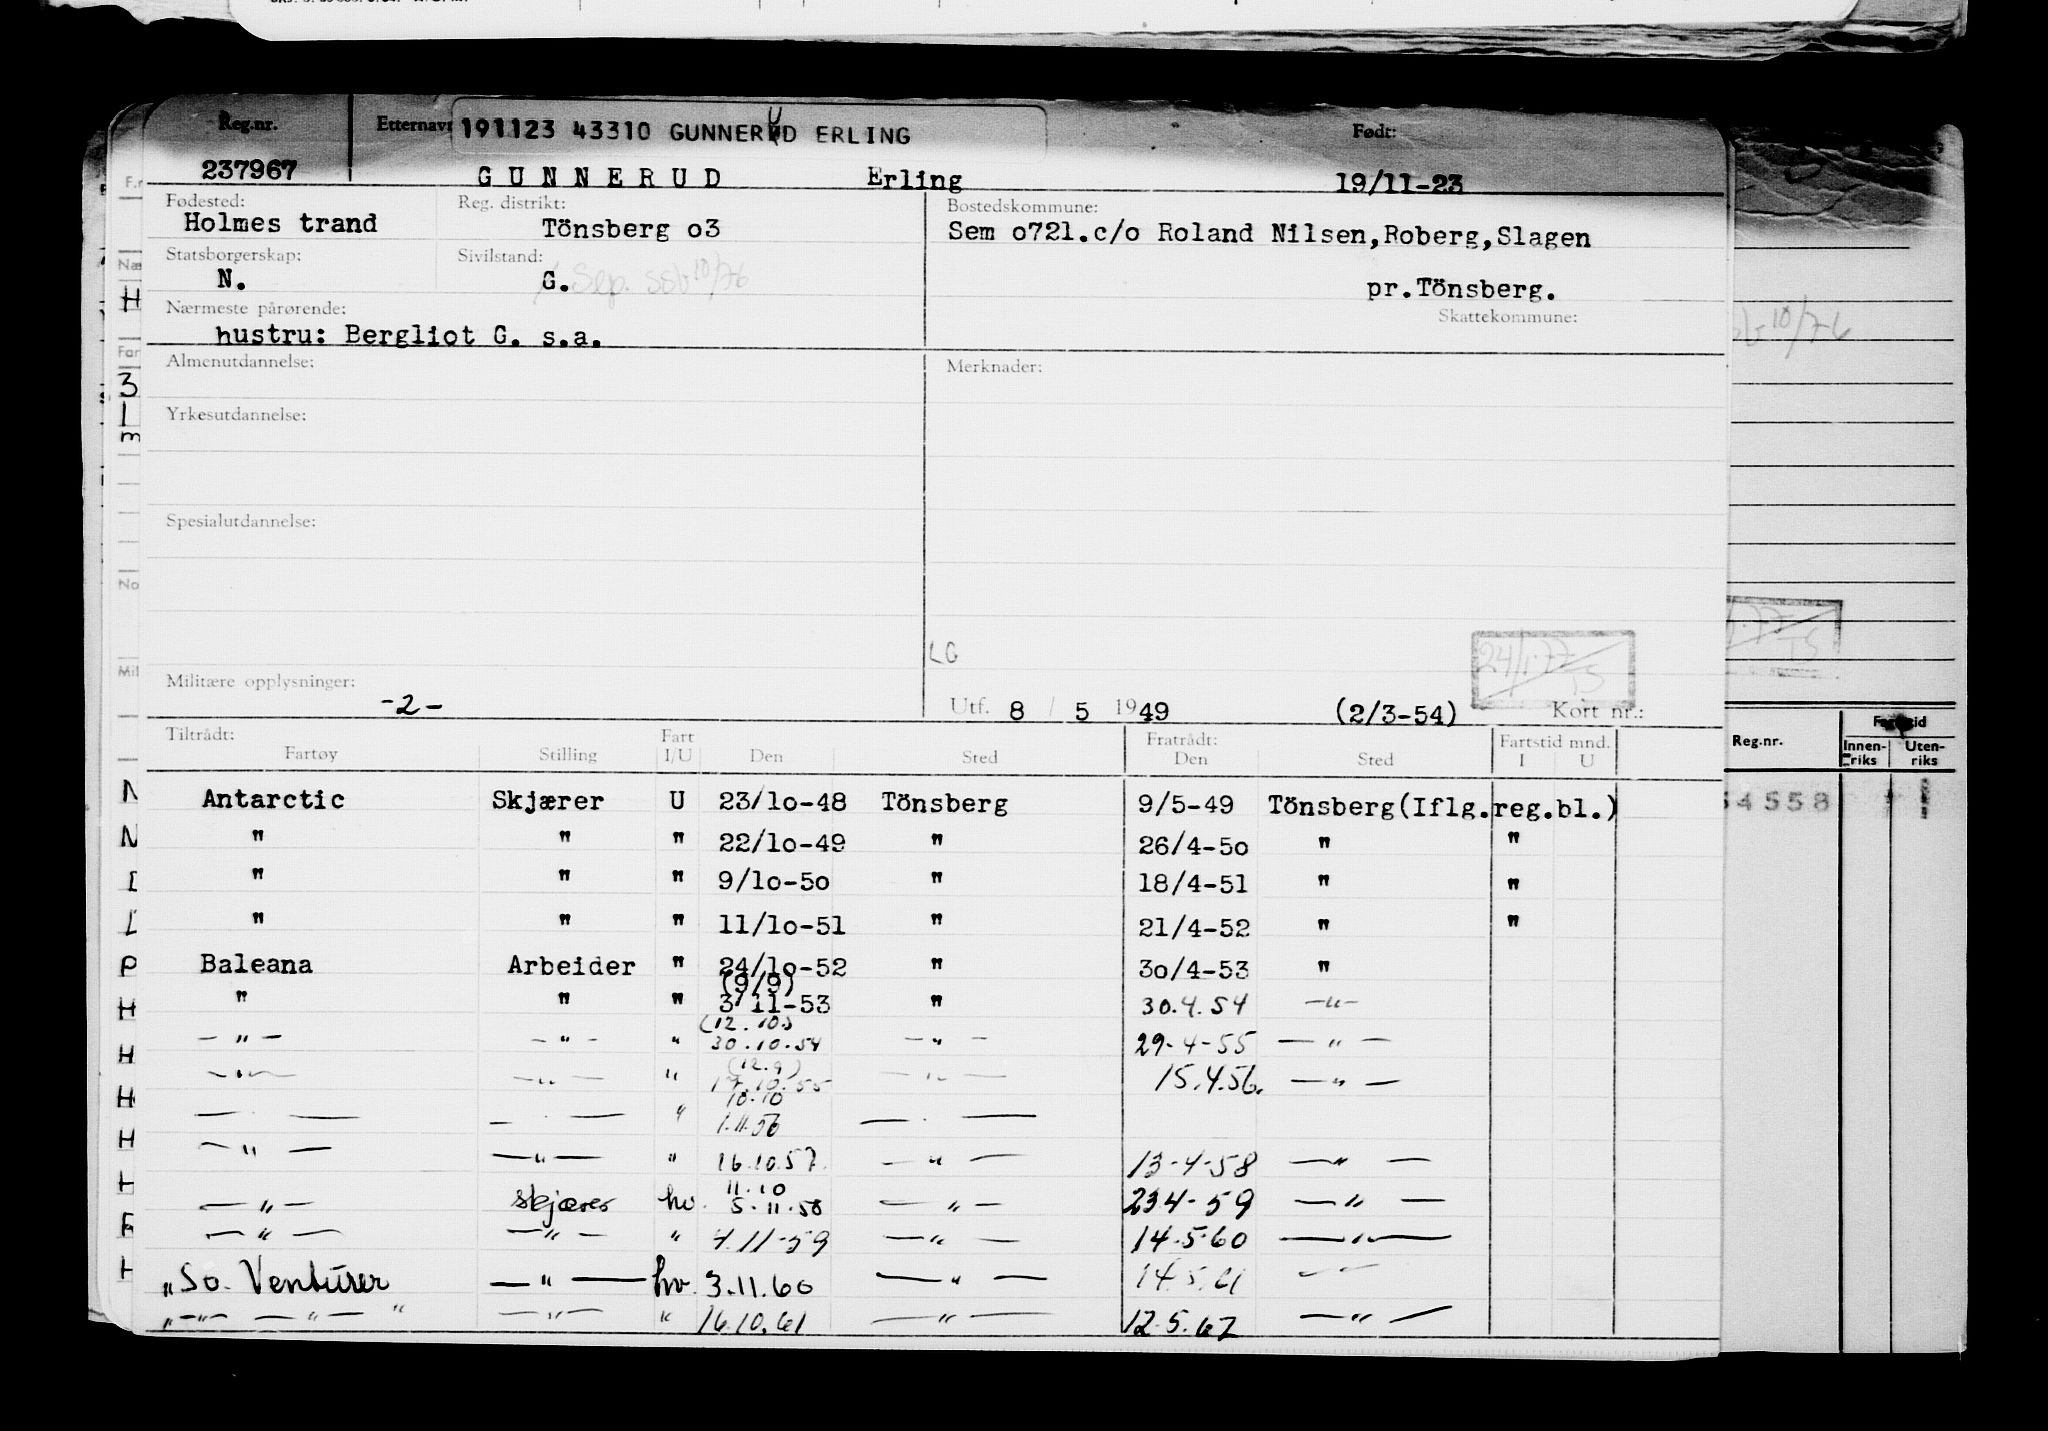 Reg.nr. Etternavn 191123 43310 GUNNERUD ERLING Født:
237967 GUNNERUD Erling 19/11-23
Fødested: Reg. distrikt: Bostedskommune:
Holmes trand Tönsberg o3 Sem o721.c/o Roland Nilsen,Roberg,Slagen
Statsborgerskap: Sivilstand:
N. G. Sep. ssb 10/76 pr.Tönsberg.
Nærmeste pårørende: Skattekommune:
hustru: Bergliot G. s.a.
Almenutdannelse: Merknader:
Yrkesutdannelse:
Spesialutdannelse:
LG
24/1.77 TS
Militære opplysninger:
-2- Utf. 8 / 5 1949 (2/3-54) Kort nr.:
Tiltrådt: Fart Fratrådt: Fartstid mnd.
Fartøy Stilling I/U Den Sted Den Sted I U
Antarctic Skjærer U 23/lo-48 Tönsberg 9/5-49 Tönsberg(Iflg.reg.bl.)
" " " 22/lo-49 " 26/4-5o " "
" " " 9/lo-5o " 18/4-51 " "
" " " 11/lo-51 " 21/4-52 " "
Baleana Arbeider " 24/lo-52 " 3o/4-53 "
(9/9)
" " " 3/11-53 " 30.4.54 -"-
(12.10)
-"- -"- " 30.10.54 -"- 29-4-55 -"-
(12.9)
-"- -"- " 17.10.55 -"- 15.4.56. -"-
10.10
-"- -"- " 1.11.56 -"-
-"- -"- " 16.10.57. -"- 13-4-58 -"-
11.10
-"- skjærer hv. 5.11.58 -"- 234-59 -"-
-"- -"- " 4.11-59 -"- 14.5.60 -"-
"So. Venturer -"- hv. 3.11.60 -"- 14.5.61 -"-
"-"- -"- " -"- " 16.10.61 -"- 12.5.62 -"-
Reg.nr. Fartstid
Innenriks Utenriks
54558
10/76